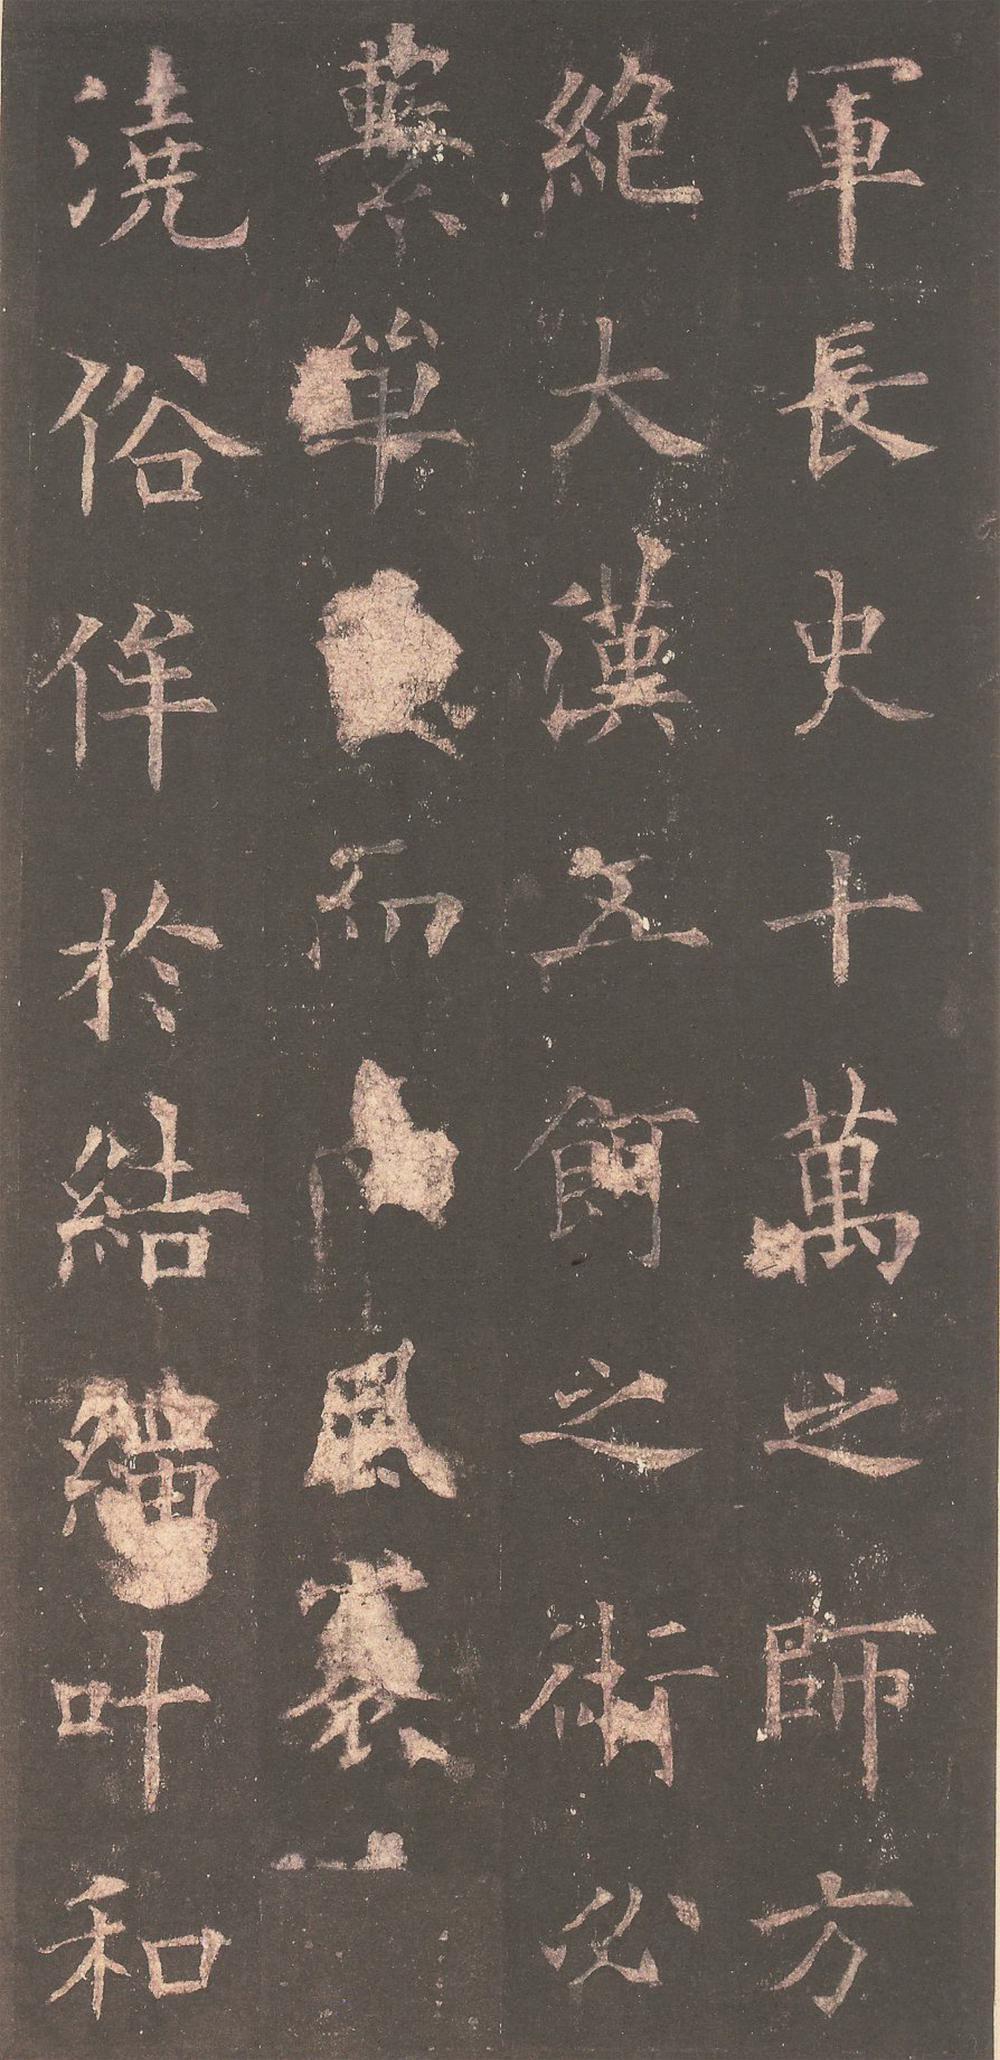 軍長史十萬之師方
絕大漢五餌之術必
繫單而風
澆俗侔於結繩叶和